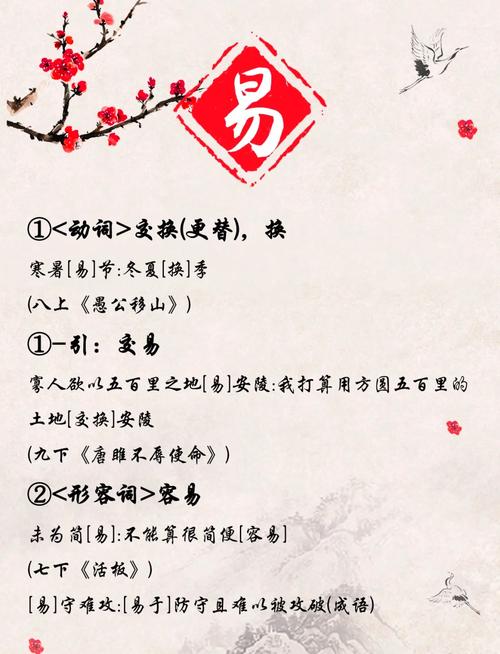 易
①<动词>交换(更替)，换
寒暑[易]节:冬夏[换]季
(八上《愚公移山》)
①-引：交易
寡人欲以五百里之地[易]安陵:我打算用方圆五百里的
土地[交换]安陵
(九下《唐雎不辱使命》)
②<形容词>容易
未为简[易]:不能算很简便[容易]
(七下《活板》)
[易]守难攻:[易于]防守且难以被攻破(成语)